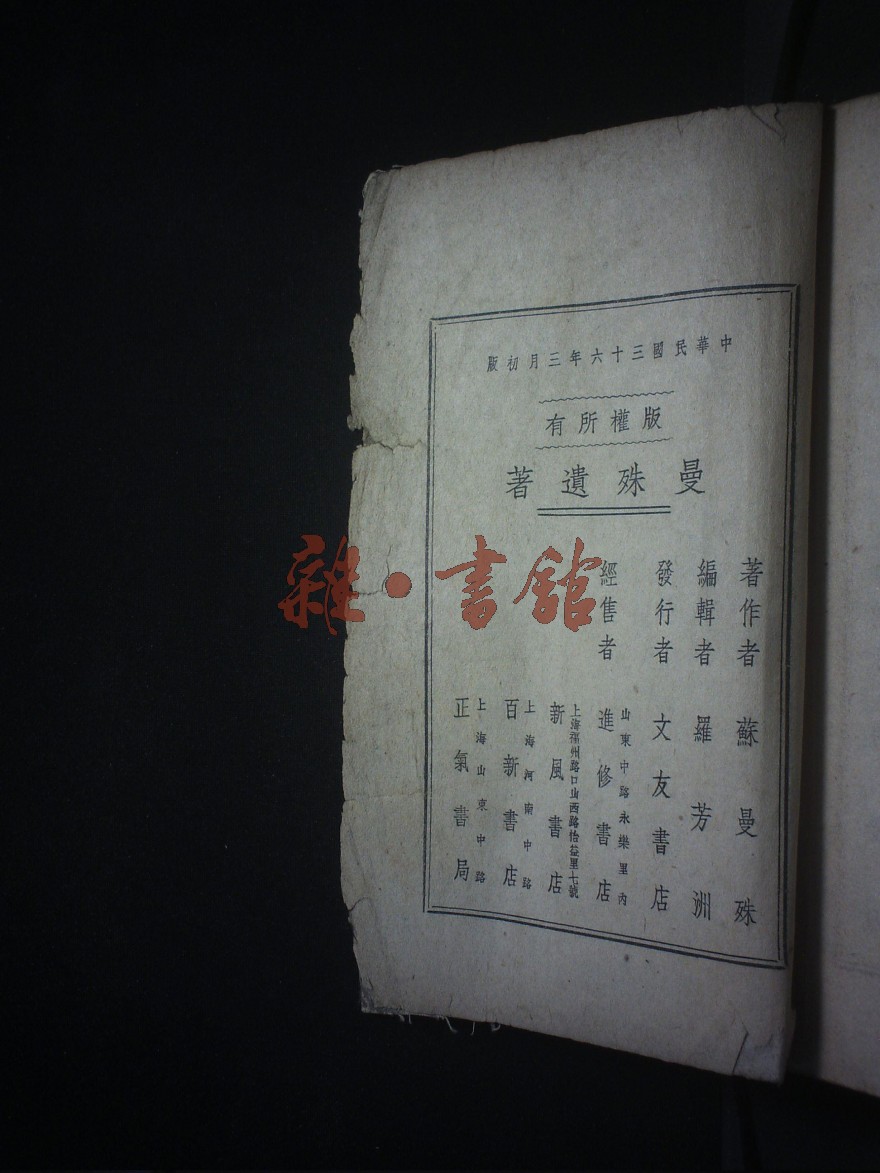 中華民國三十六年三月初版
版權所有
曼殊遺著
著作者 蘇曼殊
編輯者 羅芳洲
發行者 文友書店
經售者
山東中路永樂里內
進修書店
上海福州路口山西路怡益里七號
新風書店
上海河南中路
百新書店
上海山東中路
正氣書局
雜·書館